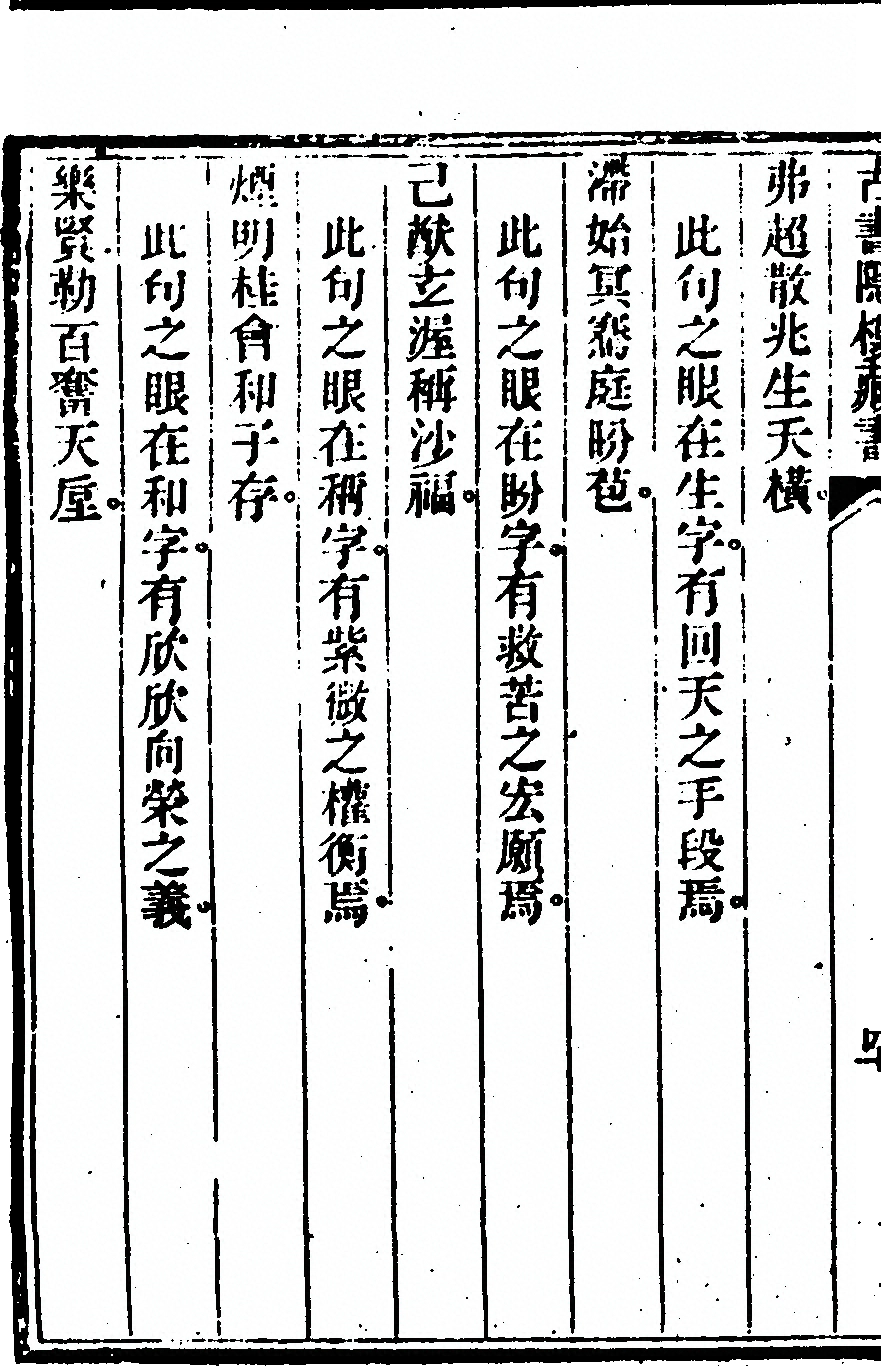 古書隱樓藏書
弗超散兆生天橫。
此句之眼在生字。有回天之手段焉。
滯始冥鴻庭盼苞。
此句之眼在盼字。有救苦之宏願焉。
己猷立渥稱沙福。
此句之眼在稱字。有紫微之權衡焉。
煙明桂會和于存。
此句之眼在和字。有欣欣向榮之義。
樂賢勒百奮天屋。